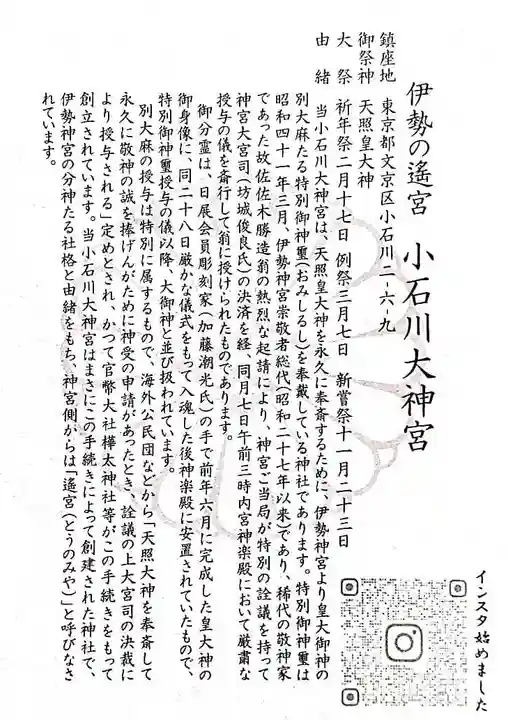 伊勢の遙宮　小石川大神宮
鎮座地　東京都文京区小石川二-六-九
御祭神　天照皇大神
大祭　祈年祭二月十七日　例祭三月七日　新嘗祭十一月二十三日
由緒　当小石川大神宮は、天照皇大神を永久に奉斎するために、伊勢神宮より皇大御神の
別大麻たる特別御神璽(おみしるし)を奉戴している神社であります。特別御神璽は
昭和四十一年三月、伊勢神宮崇敬者総代(昭和二十七年以来)であり、稀代の敬神家
であった故佐佐木勝造翁の熱烈な起請により、神宮ご当局が特別の詮議を持って
神宮大宮司(坊城俊良氏)の決済を経、同月七日午前三時内宮神楽殿において厳粛な
授与の儀を斎行して翁に授けられたものであります。
御分霊は、日展会員彫刻家(加藤潮光氏)の手で前年六月に完成した皇大神の
御身像に、同二十八日厳かな儀式をもって入魂した後神楽殿に安置されていたもので、
特別御神璽授与の儀以降、大御神と並び扱われています。
別大麻の授与は特別に属するもので、海外公民団などから「天照大神を奉斎して
永久に敬神の誠を捧げんがために神受の申請があったとき、詮議の上大宮司の決裁に
より授与される」定めとされ、かつて官幣大社樺太神社等がこの手続きをもって
創立されています。当小石川大神宮はまさにこの手続きによって創建された神社で、
伊勢神宮の分神たる社格と由緒をもち、神宮側からは「遙宮(とうのみや)」と呼びなさ
れています。
インスタ始めました